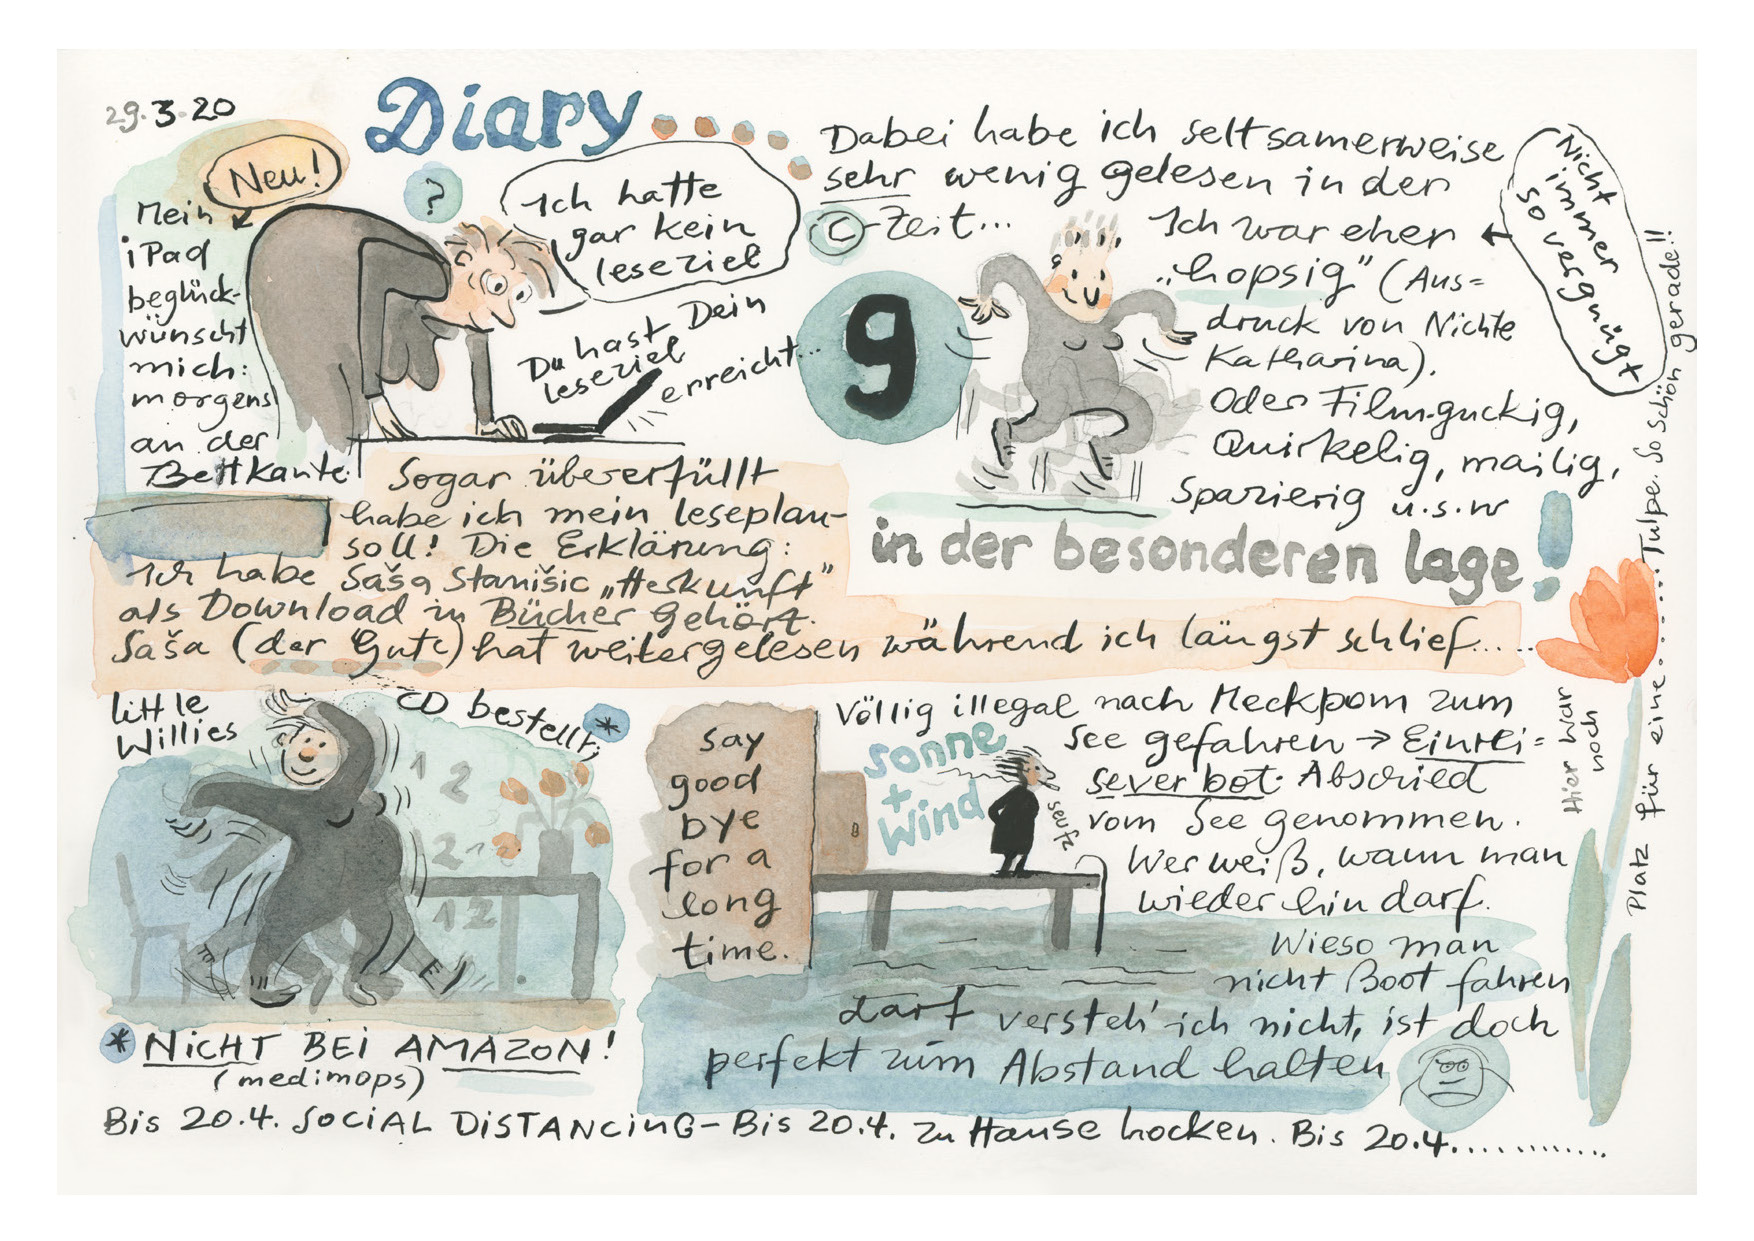 29.3.20
Diary....
Neu!
Mein
iPad
beglück-
wünscht
mich:
morgens
an der
Bettkante.
?
Ich hatte
gar kein
Leseziel
Du hast Dein
Leseziel
erreicht...
Dabei habe ich seltsamerweise
sehr wenig gelesen in der
C-Zeit...
Ich war eher
„hopsig" (Aus=
druck von Nichte
Katharina).
Oder Film-guckig,
Quirkelig, mailig,
Spazierig u.s.w
Nicht
immer
so vergnügt
9
in der besonderen Lage!
Sogar übererfüllt
habe ich mein Leseplan-
soll! Die Erklärung:
Ich habe Saša Stanišic „Herkunft"
als Download in Bücher gehört.
Saša (der Gute) hat weitergelesen während ich längst schlief.....
Little
Willies
CD bestellt,*
1 2
2 1
1 2
* NICHT BEI AMAZON!
(medimops)
say
good
bye
for a
long
time.
Völlig illegal nach Meckpom zum
See gefahren → Einrei=
severbot. Abschied
vom See genommen.
Wer weiß, wann man
wieder hin darf.
Wieso man
nicht Boot fahren
darf versteh' ich nicht, ist doch
perfekt zum Abstand halten
Sonne
+
Wind
seufz
Hier war
noch
Platz für eine.......Tulpe. So schön gerade!!
Bis 20.4. SOCIAL DISTANCING – Bis 20.4. zu Hause hocken. Bis 20.4............